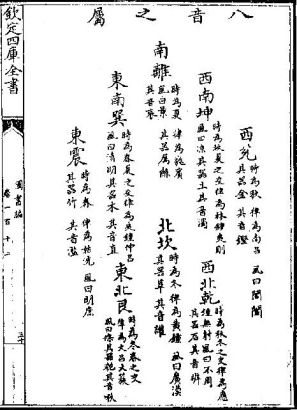 八音之屬
西兌
時為秋 律為南呂 風曰閶闔
其器金 其音鏗
西南坤
時為秋夏之交律為林鍾夷則
風曰凉其器土其音濁
南離
時為夏 律為蕤賓
風曰景 其器為絲
其音哀
東南巽
時為春夏之交律為夾鍾仲呂
風曰清明其器木其音直
東震
時為春 律為姑洗 風曰明庶
其器竹 其音濫
西北乾
時為秋冬之交律為應
鍾無射風曰不周
其器石其音辨
北坎
時為冬律為黄鍾 風曰廣漠
其器革 其音讙
東北艮
時為冬春之交
律為大呂太蔟
風曰條其器匏其音啾
欽定四庫全書
圖書編
卷一百十二